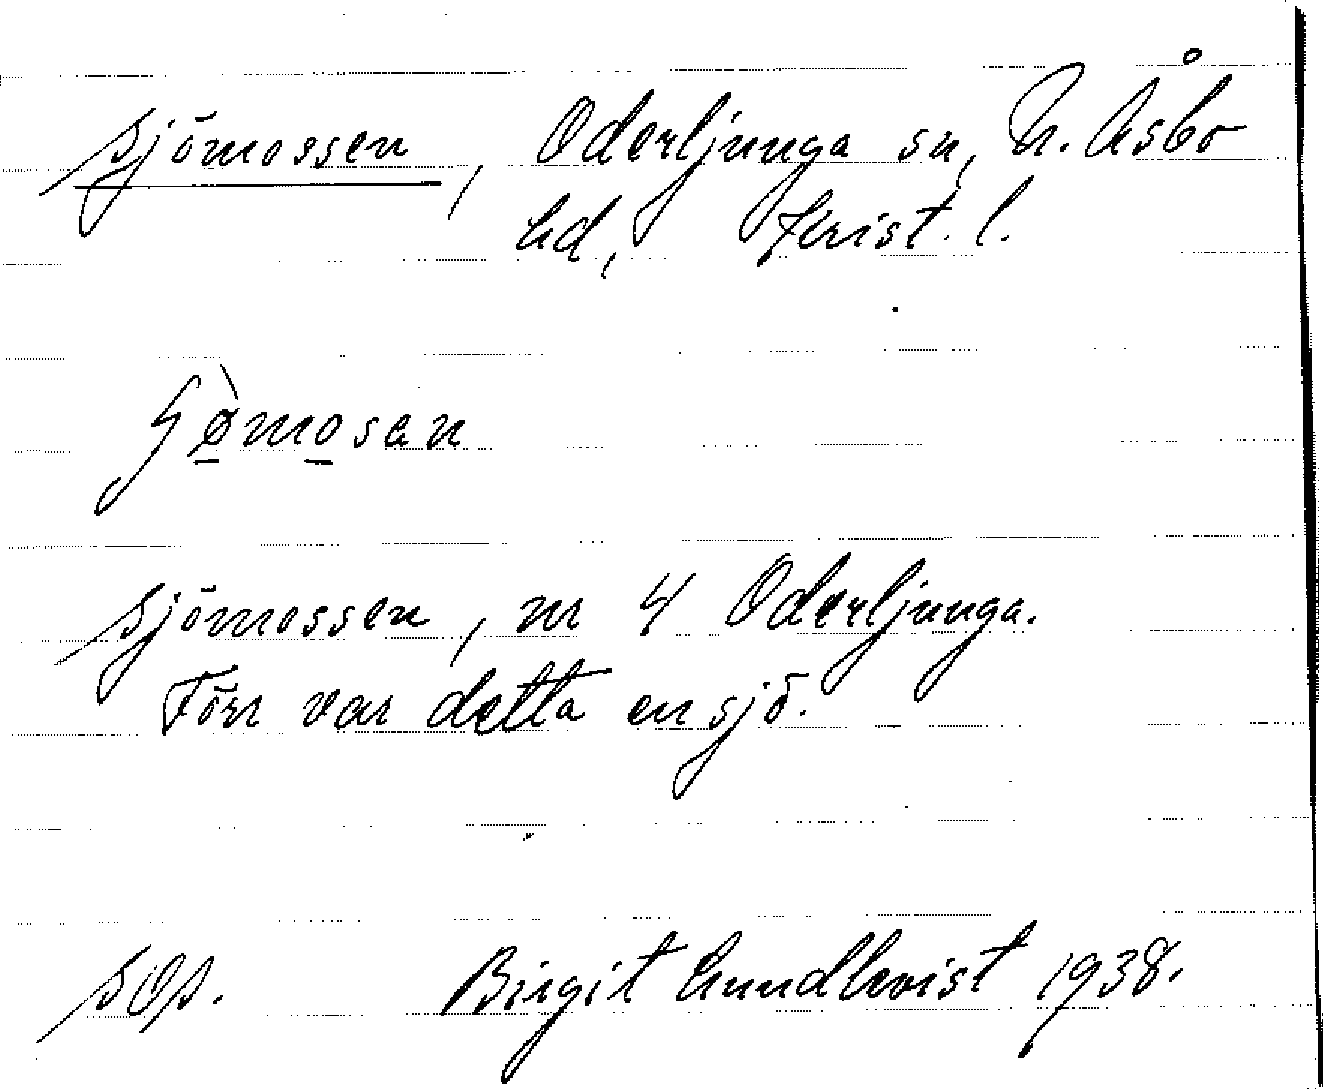 Sjömossen, Oderljunga sn, N. Åsbo
hd, Krist. l.
Sjömossen, nr 4 Oderljunga.
Förr var detta en sjö.
SOS. Birgit Lundkvist 1938.